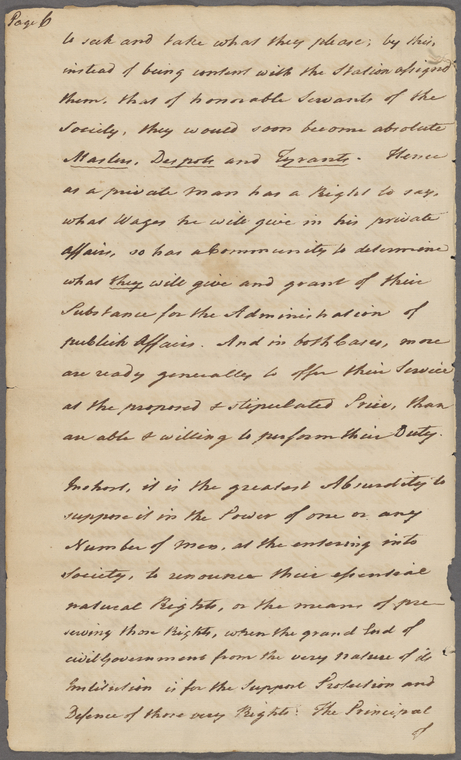 Page 6
to seek and take what they please; by this,
instead of being content with the Station assigned
them, that of honorable Servants of the
Society, they would soon become absolute
Masters, Despots and Tyrants. Hence
as a private man has a Right to say,
what Wages he will give in his private
Affairs, so has a Community to determine
what they will give and grant of their
Substance for the Administration of
publick Affairs. And in both Cases, more
are ready generally to offer their Service
at the proposed & stipulated Price, than
are able & willing to perform their Duty.
In short, it is the greatest Absurdity to
suppose it in the Power of one or any
Number of men, at the entering into
Society, to renounce their essential
natural Rights, or the means of pre-
serving those Rights, when the grand End of
civil Government from the very nature of its
Institution is for the Support Protection and
Defence of those very Rights: The Principal
of